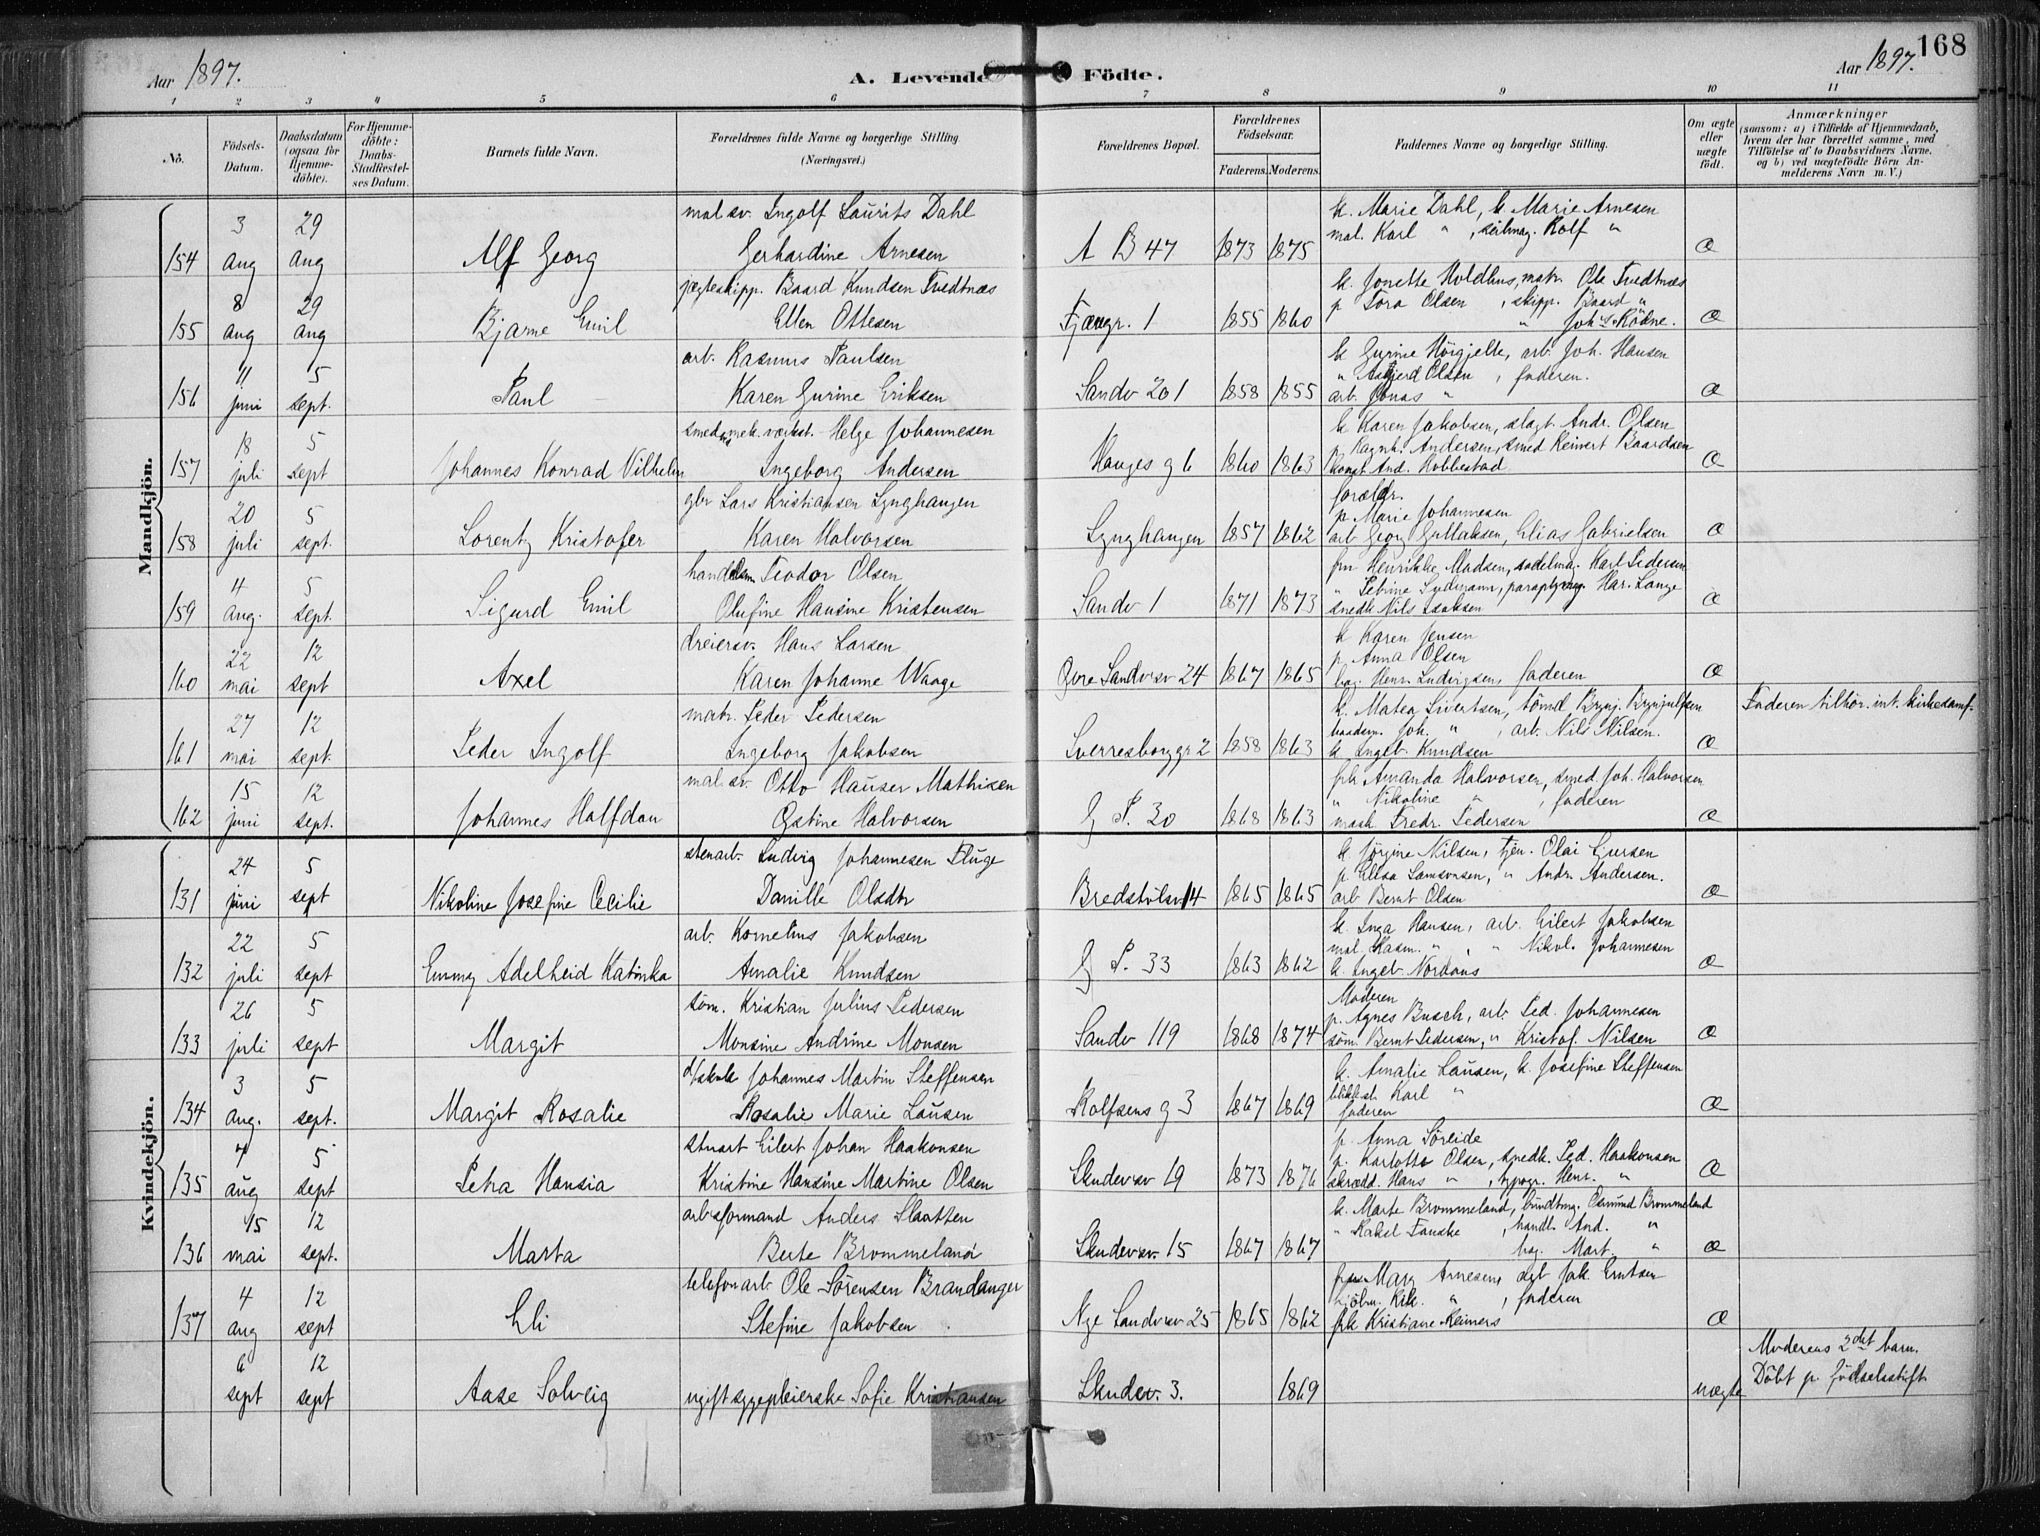 Aar 1897.
A. Levende Födte.
Aar 1897.
168
1 2 3 4 5 6 7 8 9 10 11
No.
Födsels-Datum.
Daabsdatum (ogsaa for Hjemme-döbte).
For Hjemme-döbte: Daabs-Stadfæstel-ses Datum.
Barnets fulde Navn.
Forældrenes fulde Navne og borgerlige Stilling. (Næringsvei.)
Forældrenes Bopæl.
Forældrenes Födselsaar.
Faderens. Moderens.
Faddernes Navne og borgerlige Stilling.
Om ægte eller uægte födt.
Anmærkninger
(saasom: a) i Tilfælde af Hjemmedaab, hvem der har forrettet samme, med Tilföielse af to Daabsvidners Navne, og b) ved uægtefödte Börn An-melderens Navn m. V.)
Mandkjön.
154 3 aug 29 aug Alf Georg
mal.sv. Ingolf Laurits Dahl
Gerhardine Arnesen
A B 47 1873 1875
k. Marie Dahl, k. Marie Arnesen
mal. Karl " , seilmag. Rolf "
Æ
155 8 aug 29 aug Bjarne Emil
jægteskipp. Baard Knudsen Tvedtnæs
Ellen Ottesen
Fjæregr. 1 1855 1860
k. Jonette Holdhus, matr. Ole Tvedtnæs
p Tora Olsen , skipp. Baard "
Æ
156 11 juni 5 sept. Paul
arb. Rasmus Paulsen
Karen Gurine Eriksen
Sandv 201 1858 1855
k Gurine Hörgjelte, arb. Joh. Hansen
" Olsen , faderen.
arb. Jonas "
Æ
157 18 juli 5 sept Johannes Konrad Vilhelm
smed mek. værkst. Helge Johannesen
Ingeborg Andersen
Hauges g 6 1860 1863
k Karen Jakobsen, slagt. Andr. Olsen
p. Ragnh. Andersen, smed Reinert Baardsen
And. Hobbestad
Æ
158 20 juli 5 sept. Lorentz Kristofer
gbr Lars Kristiansen Lynghaugen
Karen Halvorsen
Lynghaugen 1857 1862
forældr.
p Marie Johannesen
arb Georg Guttaksen, Elias Gabrielsen
Æ
159 4 aug. 5 sept. Sigurd Emil
handelsm Teodor Olsen
Olufine Hansine Kristensen
Sandv 1 1871 1873
fru Henrikke Madsen, sadelmag. Karl Pedersen
" Petrine , paraplymag. Har. Lange
snedk Nils Isaksen
Æ
160 22 mai 12 sept Axel
dreiersv. Hans Larsen
Karen Johanne Waage
Övre Sandvsv 24 1867 1865
k Karen Jensen
p. Anna Olsen
bag. Henr. Ludvigsen, faderen
Æ
161 27 mai 12 sept. Peder Ingolf
matr. Peder Pedersen
Ingeborg Jakobsen
Sverresborggr 2 1858 1863
k. Matea Sivertsen, tömd Brynj. Brynjulfsen
baadsm. Joh. " , arb. Nils Nilsen.
k Ingeb. Knudsen
Æ
Faderen tilhör. int. kirkesamf.
162 15 juni 12 sept. Johannes Halfdan
mal.sv. Otto Hauser Mathisen
Östine Halvorsen
G P. 30 1868 1863
frk Amanda Halvorsen, smed Joh. Halvorsen
" Nikoline " , faderen
mask. Fredr. Pedersen
Æ
Kvindekjön.
131 24 juni 5 sept Nikoline Josefine Cecilie
stenarb. Ludvig Johannesen Fluge
Danille Olsdtr
Bredstölsv 14 1865 1865
k. Jörgine Nilsen, tjen. Olai Gjersen
p. Elisa Samsonsen, " Andr. Andersen.
arb Bernt Olsen
Æ
132 22 juli 5 sept Emmy Adelheid Katinka
arb. Kornelius Jakobsen
Amalie Knudsen
G P. 33 1863 1862
k. Inga Hansen, arb. Eilert Jakobsen
mal. Rasm. " , " Nikol. Johannesen
k. Ingeb. Nordaas
Æ
133 26 juli 5 sept Margit
söm. Kristian Julius Pedersen
Monsine Andrine Monsen
Sandv 119 1868 1874
Moderen
p. Agnes Busch, arb. Ped. Johannesen
söm. Bernt Pedersen, " Kristof. Nilsen
Æ
134 3 aug. 5 sept. Margit Rosalie
Johannes Martin Steffensen
Rosalie Marie Lausen
Rolfsens g 3 1867 1869
k. Amalie Lausen, k. Josefine Steffensen
blikksl. Karl "
faderen
Æ
135 4 aug 5 sept Petra Hansia
stuart Eilert Johan Haakonsen
Kristine Hansine Martine Olsen
Skudevsv 19 1873 1876
p. Anna Söreide
p. Karlotte Olsen, snedk. Ped. Haakonsen
skrædd. Hans " , typogr. Henr. "
Æ
136 15 mai 12 sept. Marta
arbsformand Anders Slaatten
Berte Brommeland
Skudevsv. 15 1867 1867
k. Marte Brommeland, bundtmg. Osmund Brommeland
" Rakel Fanske , handl. And. "
bag. Mart. "
Æ
137 4 aug 12 sept Eli
telefonarb. Ole Sörensen Brandanger
Stefine Jakobsen
Nye Sandvsv 25 1865 1862
Marg Arnesen, Jak. Erntsen
kjöbm. Rik. " , faderen
frk Kristiane Reimers
Æ
6 sept 12 sept Aase Solveig
ugift sygepleierske Sofie Kristiansen
Skudev. 3. 1869
uægte
Moderens 2det barn.
Döbt p. födselsstift